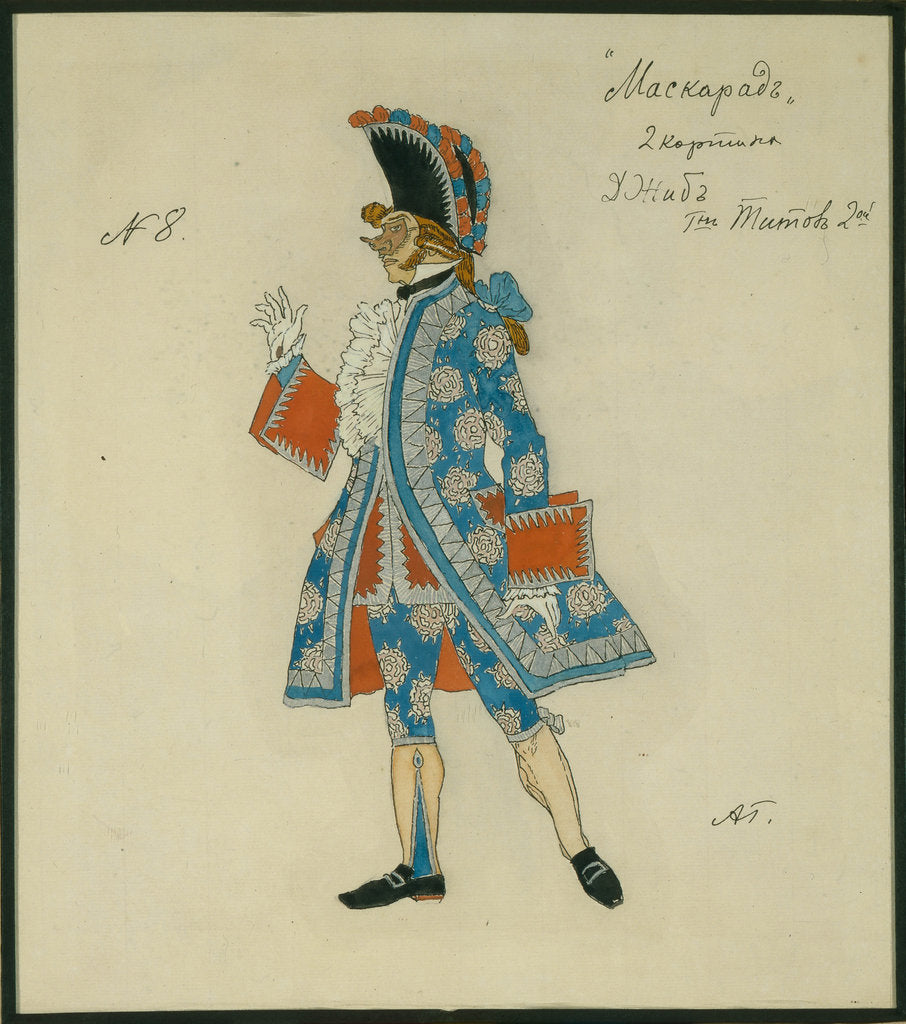 "Маскарадъ„
2 картина
Джибъ
Гнъ Титовъ 2ой
N 8.
АГ.